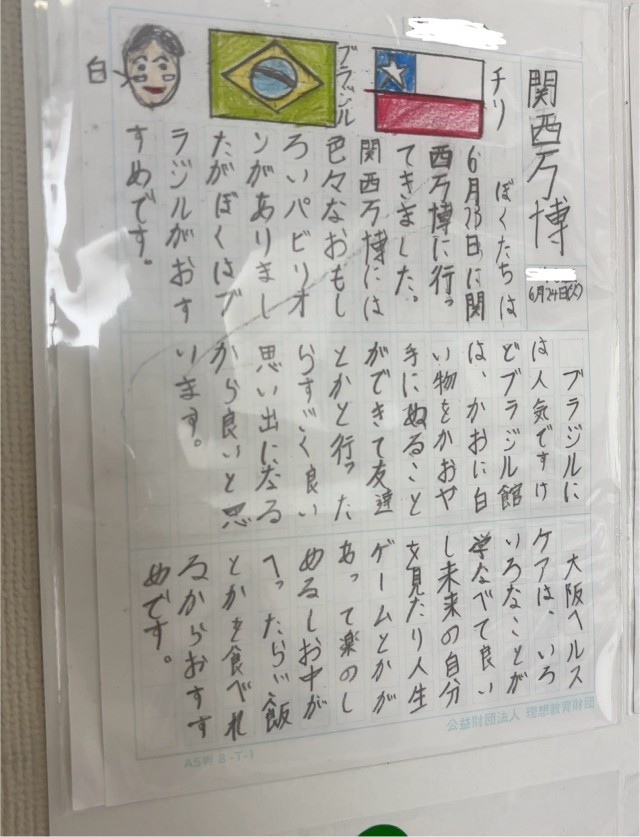 関西万博
6月24日(火)
チリ
ブラジル
白
ぼくたちは
6月23日に関
西万博に行っ
てきました。
関西万博には
色々なおもし
ろいパビリオ
ンがありまし
たがぼくはブ
ラジルがおす
すめです。
ブラジルに
は人気ですけ
どブラジル館
は、かおに白
い物をかおや
手にぬること
ができて友達
とかと行った
らすごく良い
思い出になる
から良いと思
います。
大阪ヘルス
ケアは、いろ
いろなことが
学なべて良い
し未来の自分
を見たり人生
ゲームとかが
あって楽のし
めるしお中が
へったらご飯
とかを食べれ
るからおすす
めです。
A5判 8-T-1
公益財団法人 理想教育財団